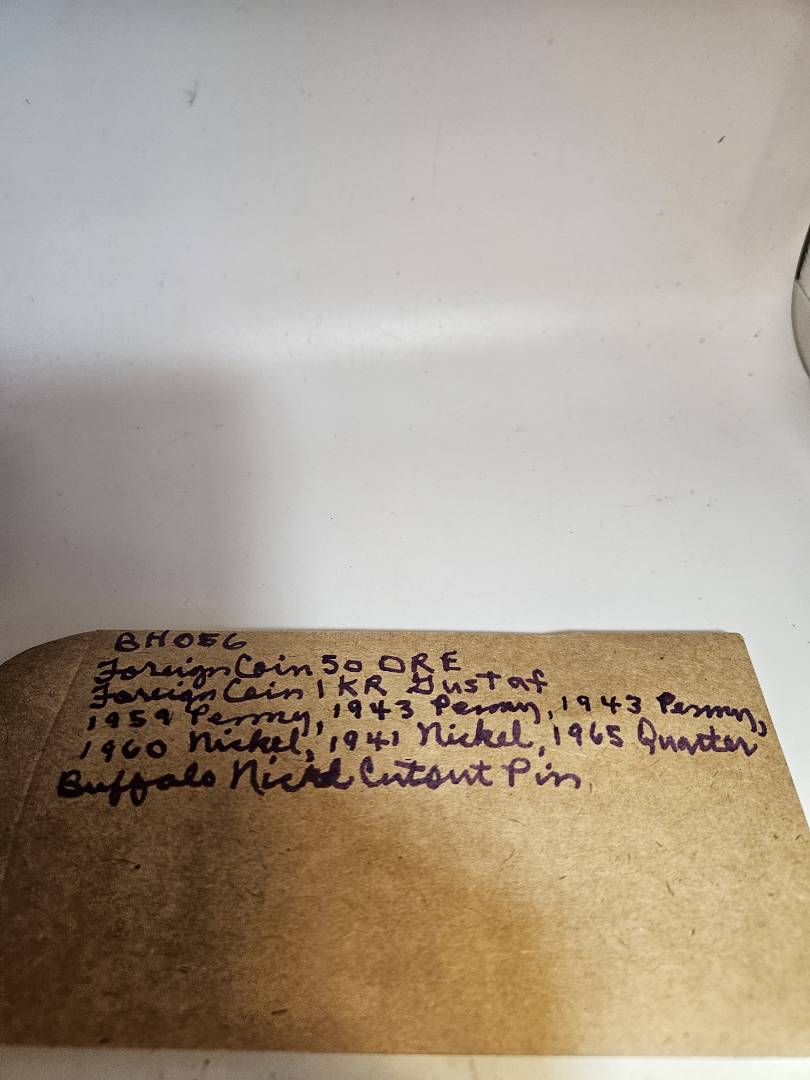 BH056
Foreign Coin 50 ORE
Foreign Coin 1 KR Gustaf
1959 Penny, 1943 Penny, 1943 Penny,
1960 Nickel, 1941 Nickel, 1965 Quarter
Buffalo Nickel Cutout Pin